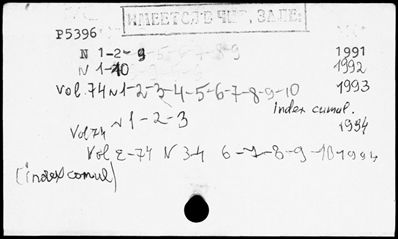 ИМЕЕТСЯ В ЧИТ. ЗАЛЕ
P5396
N 1-2-9-5-6-7-8-9 1991
N 1-10 1992
Vol. 74 N 1-2-3-4-5-6-7-8-9-10 1993
index cumul.
Vol 74 N 1-2-3 1994
Vol Σ-74 N 34 6-7-8-9-10-1994
(index comul)